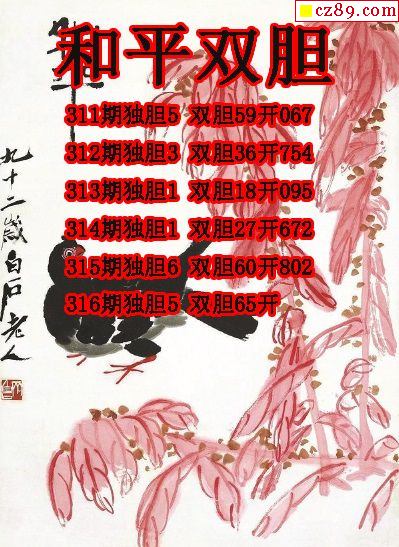 cz89.com
和平双胆
311期独胆5 双胆59开067
312期独胆3 双胆36开754
313期独胆1 双胆18开095
314期独胆1 双胆27开672
315期独胆6 双胆60开802
316期独胆5 双胆65开
九十二岁白石老人